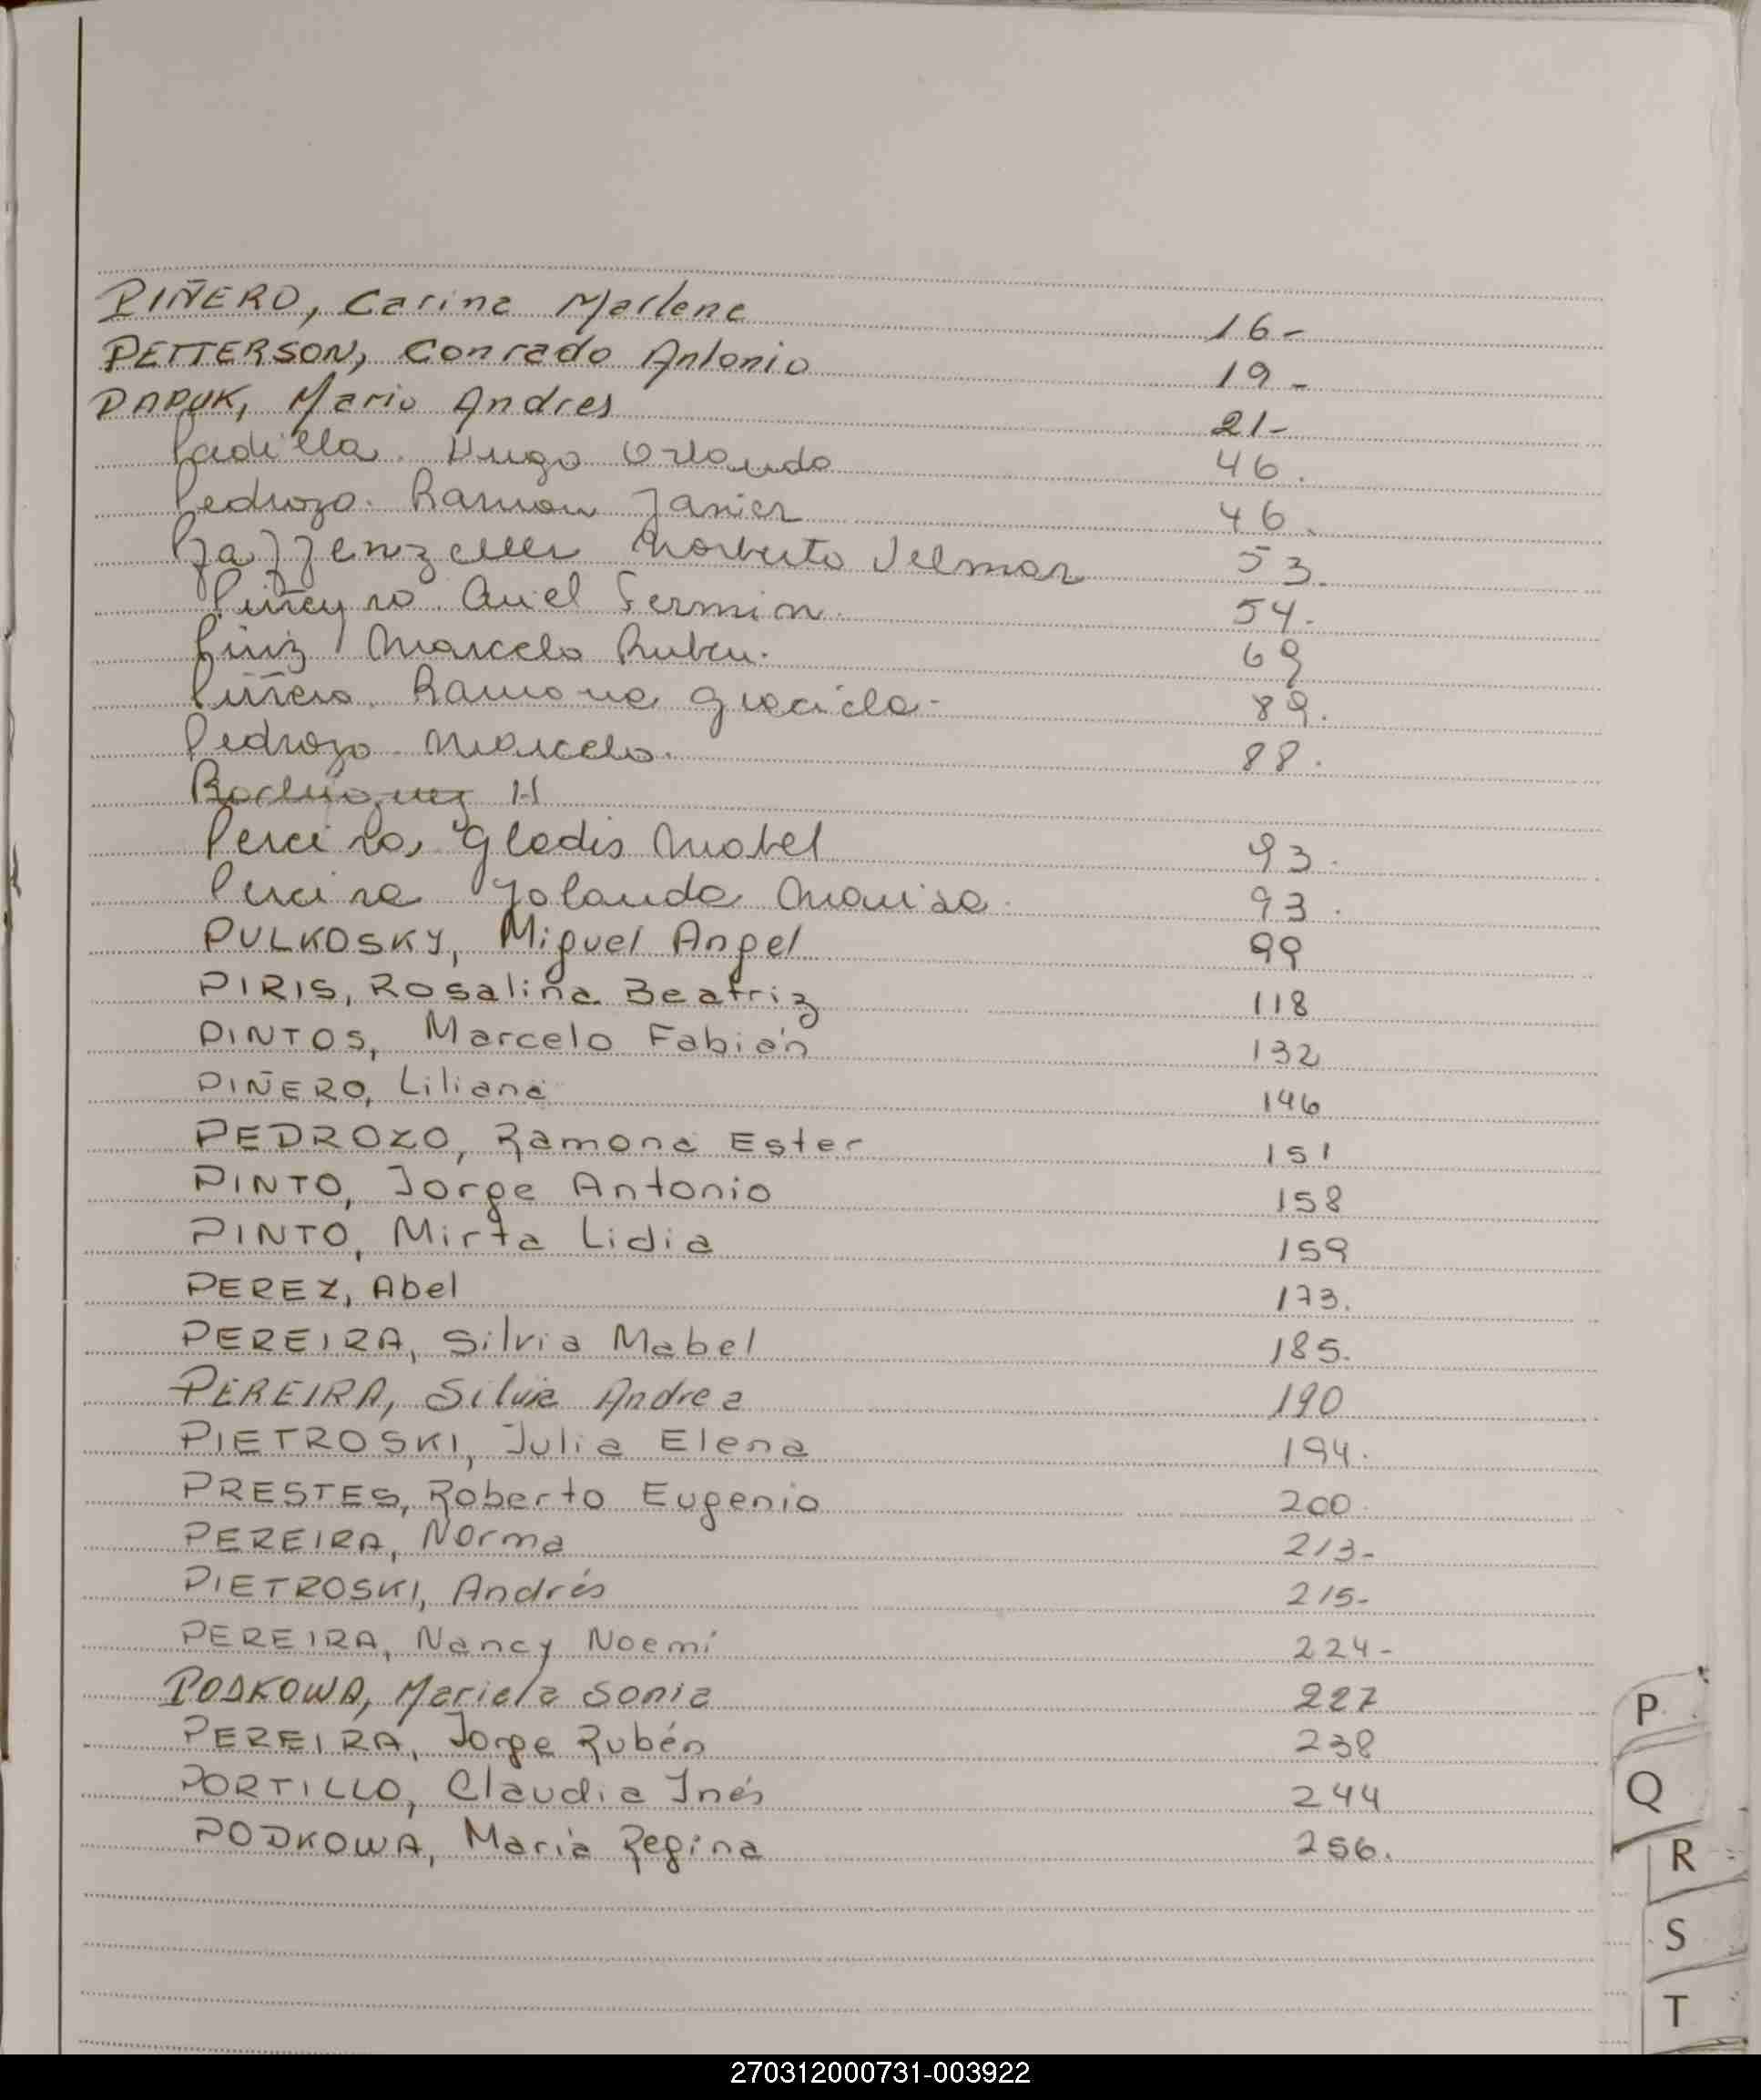 PIÑERO, Carina Marlene 16-
PETTERSON, Conrado Antonio 19-
PAPUK, Mario Andres 21-
Padilla. Hugo Orlando 46.
Pedrozo. Ramon Javier 46.
Norberto Velmar 53.
Piñeyro. Ariel Fermin. 54.
Piriz Marcelo Ruben. 69
Piñero. Ramona Graciela- 89.
Pedrozo. Marcelo. 88.
Rodriguez H
Pereira, Gladis Mabel 93.
Pereira Yolanda Marisa. 93.
PULKOSKY, Miguel Angel 99
PIRIS, Rosalina Beatriz 118
PINTOS, Marcelo Fabián 132
PIÑERO, Liliana 146
PEDROZO, Ramona Ester 151
PINTO, Jorge Antonio 158
PINTO, Mirta Lidia 159
PEREZ, Abel 173.
PEREIRA, Silvia Mabel 185.
PEREIRA, Silvia Andrea 190
PIETROSKI, Julia Elena 194.
PRESTES, Roberto Eugenio 200.
PEREIRA, Norma 213-
PIETROSKI, Andrés 215-
PEREIRA, Nancy Noemí 224-
PODKOWA, Mariela Sonia 227
PEREIRA, Jorge Rubén 238
PORTILLO, Claudia Inés 244
PODKOWA, María Regina 256.
P
Q
R
S
T
270312000731-003922